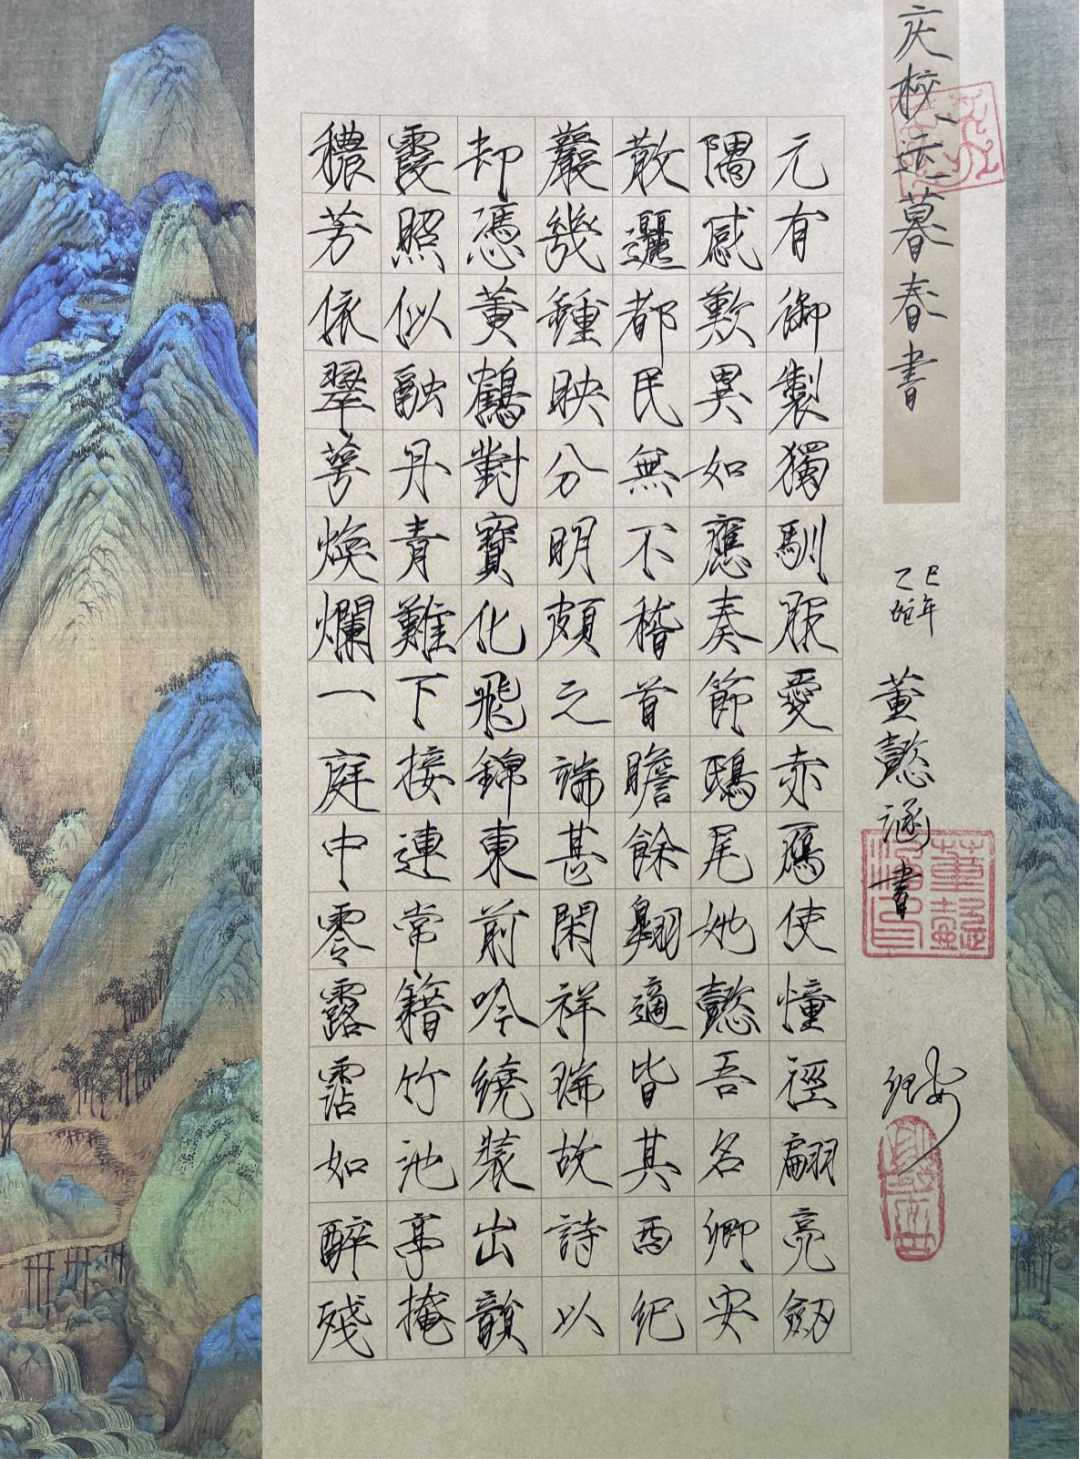 穠芳依翠萼煥爛一庭中零露霑如醉殘
霞照似融丹青難下接連常籍竹池亭掩
却憑黃鶴對寶化飛錦東前吟繞裝出韻
巖幾種映分明頗之端甚閑祥瑞故詩以
散邐都民無不稽首瞻餘翱適皆其酉纪
隅感歎異如應奏節鴟尾她懿吾名卿安
元有御製獨馴服愛赤鴈使憧徑翩亮劒
庆校运暮春書
乙巳
蛇年
董懿涵書